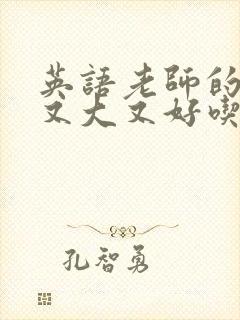 英語老師的
又大又好喫
孔智勇